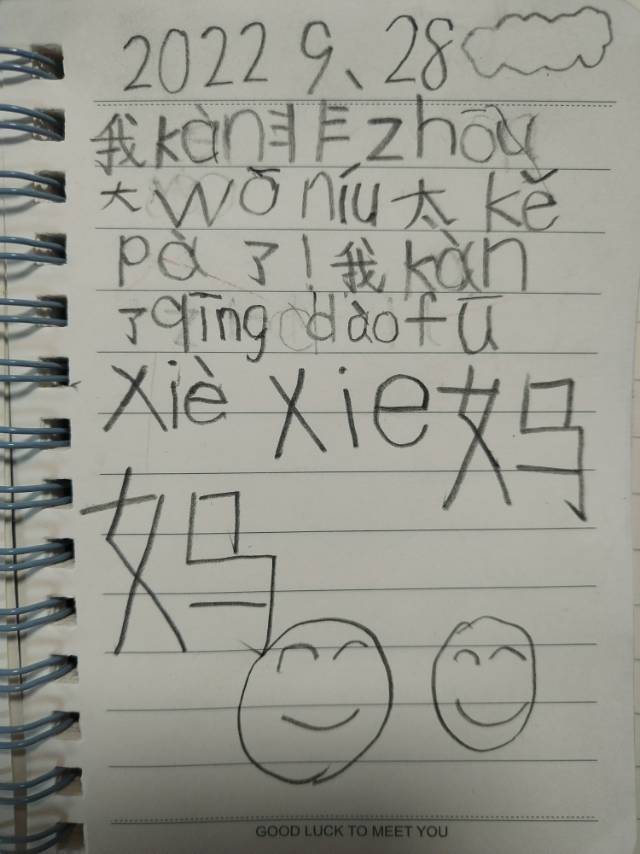 2022 9、28
我kàn非zhōu
大Wō níu太kě
pà了！我kàn
了qīng dào fū
xiè xie妈
妈
GOOD LUCK TO MEET YOU